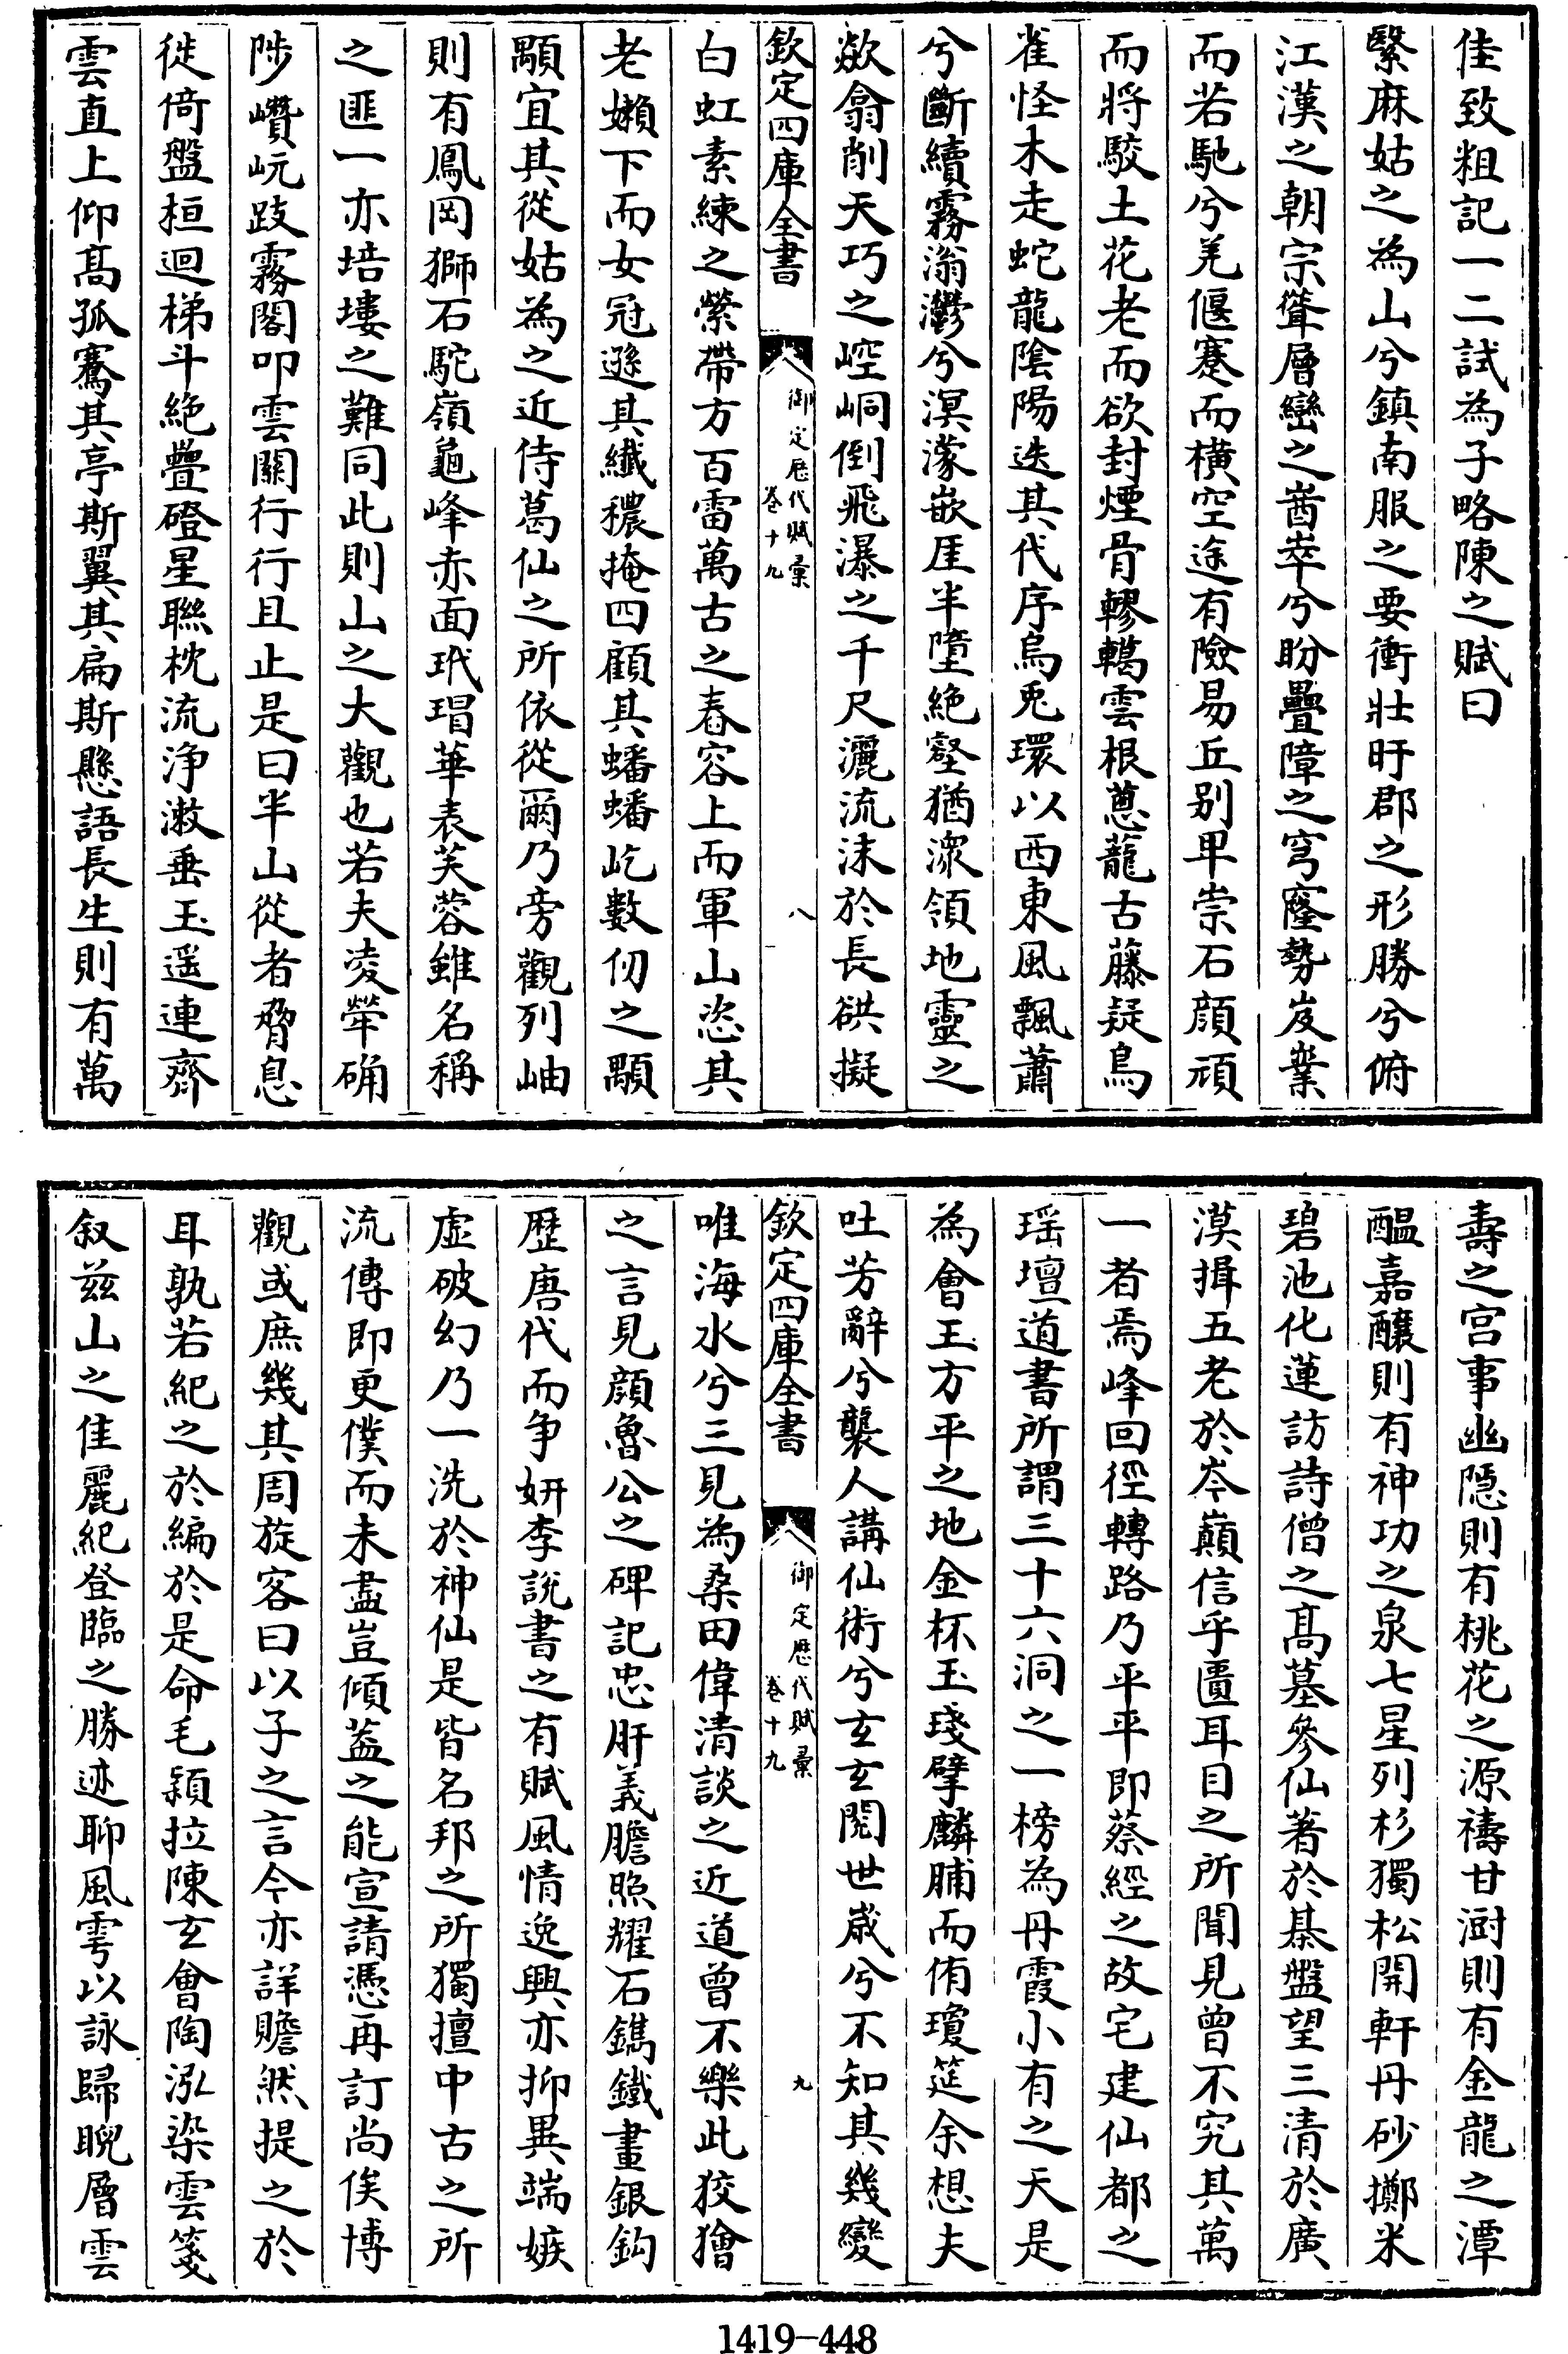 佳致粗記一二試為子略陳之賦曰
緊麻姑之為山兮鎮南服之要衝壯盱郡之形勝兮俯
江漢之朝宗聳層巒之崷崒兮盼疊障之穹窿勢岌業
而若馳兮羌偃蹇而橫空途有險易丘别卑崇石顔頑
而將駮土花老而欲封煙骨轇轕雲根蔥蘢古藤疑鳥
雀怪木走蛇龍陰陽迭其代序烏兎環以西東風飄蕭
兮斷續霧滃灣兮溟濛嵌厓半墮絶壑猶潨領地靈之
歘翕削天巧之崆峒倒飛瀑之千尺灑流沫於長谼擬
欽定四庫全書
御定歷代賦彙
卷十九
八
白虹素練之縈帶方百雷萬古之舂容上而軍山恣其
老嬾下而女冠遜其纖穠掩四顧其蟠蟠屹數仞之顒
顒宜其從姑為之近侍葛仙之所依從爾乃旁觀列岫
則有鳳岡獅石駝嶺龜峰赤面玳瑁華表芙蓉雖名稱
之匪一亦培塿之難同此則山之大觀也若夫凌犖确
陟巑岏跂霧閣叩雲關行行且止是曰半山從者脅息
徙倚盤桓迴梯斗絶疊磴星聯枕流浄漱垂玉遥連齊
雲直上仰髙孤騫其亭斯翼其扁斯懸語長生則有萬
壽之宫事幽隠則有桃花之源禱甘澍則有金龍之潭
醖嘉釀則有神功之泉七星列杉獨松開軒丹砂擲米
碧池化蓮訪詩僧之髙墓參仙著於棊盤望三清於廣
漠揖五老於岑巔信乎匱耳目之所聞見曾不究其萬
一者焉峰回徑轉路乃平平即蔡經之故宅建仙都之
瑶壇道書所謂三十六洞之一榜為丹霞小有之天是
為會王方平之地金杯玉琖擘麟脯而侑瓊筵余想夫
吐芳辭兮襲人講仙術兮玄玄閱世歲兮不知其幾變
欽定四庫全書
御定歷代賦彙
卷十九
九
唯海水兮三見為桑田偉清談之近道曾不樂此狡獪
之言見顔魯公之碑記忠肝義膽照耀石鐫鐵畫銀鈎
歷唐代而争妍李說書之有賦風情逸興亦抑異端嫉
虚破幻乃一洗於神仙是皆名邦之所獨擅中古之所
流傳即更僕而未盡豈傾葢之能宣請憑再訂尚俟博
觀或庶幾其周旋客曰以子之言今亦詳贍然提之於
耳孰若紀之於編於是命毛穎拉陳玄會陶泓染雲箋
叙兹山之佳麗紀登臨之勝迹聊風雩以詠歸睨層雲
1419-448